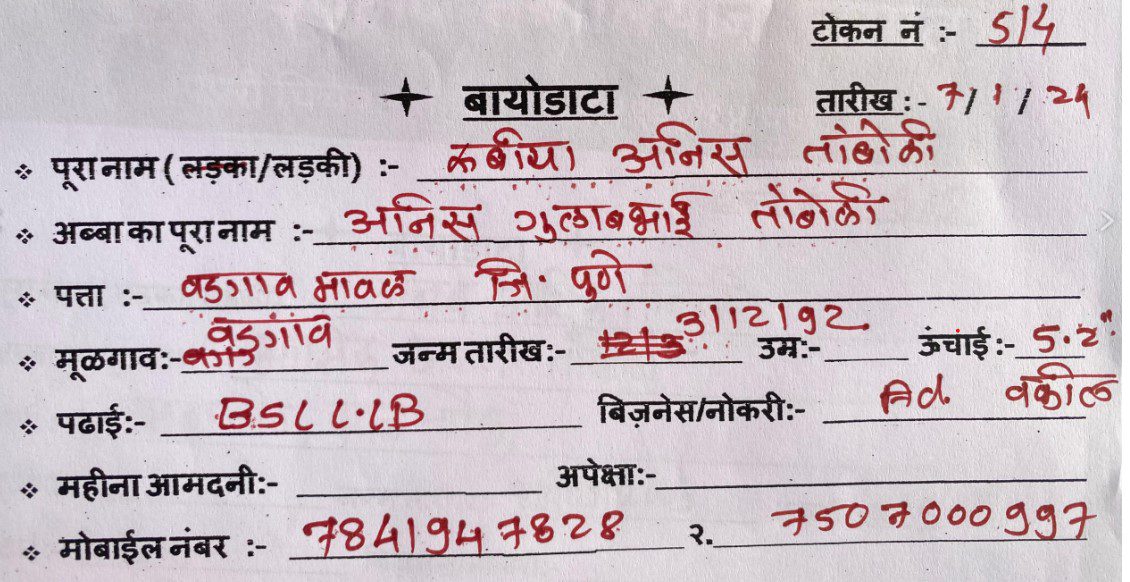 टोकन नं :- 514
बायोडाटा
तारीख :- 7/1/24
पूरा नाम ( लड़का/लड़की) :- कबीया अनिस तांबोळी
अब्बा का पूरा नाम :- अनिस गुलाबभाई तांबोळी
पत्ता :- वडगाव मावळ जि. पुणे
मूळगाव:- वडगाव जन्म तारीख:- 3/12/92 उम्र:- ऊंचाई :- 5.2"
पढाई:- BSLL.LB बिज़नेस/नोकरी:- Ad. वकील
महीना आमदनी:- अपेक्षा:-
मोबाईल नंबर :- 7841947828 २. 7507000997